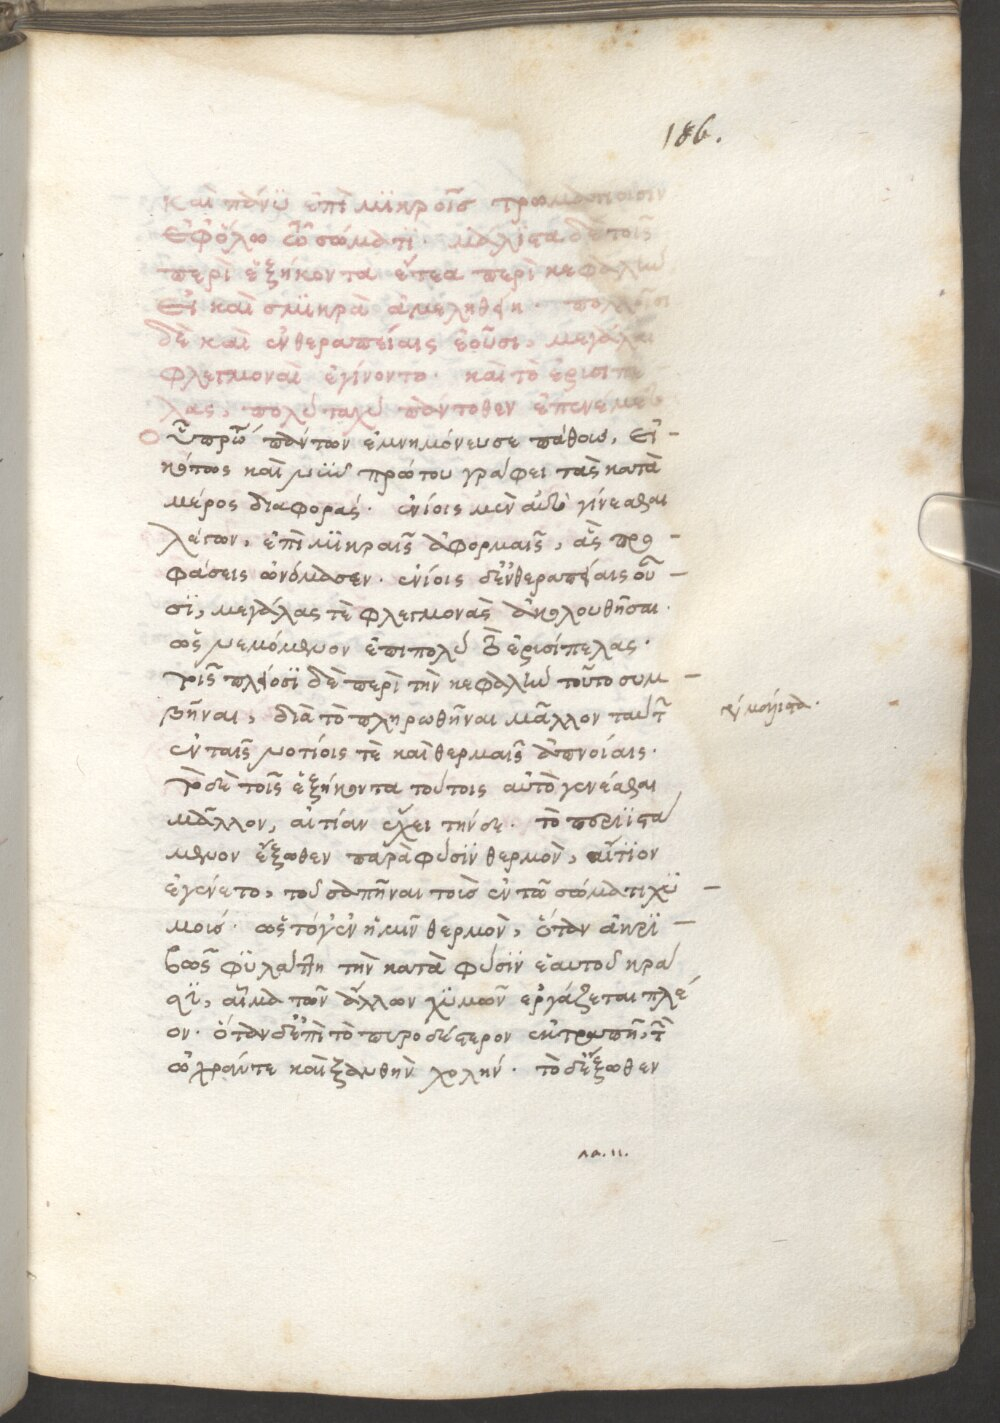 186.
καὶ πάνυ ἐπὶ μικροῖς τρωματίοισιν
ἐφ' ὅλω τῶ σώματι· μάλιστα δὲ τοῖς
περὶ ἑξήκοντα ἔτεα περὶ κεφαλὴν
εἰ καὶ σμικρὰ ἀμεληθείη· πολλοῖσι
δὲ καὶ ἐν θεραπείαις ἐοῦσι, μεγάλαι
φλεγμοναὶ ἐγίνοντο· καὶ τὸ ἐρυσίπε
λας, πολὺ ταχὺ πάντοθεν ἐπενέμετο
Οὗ πρῶτου πάντων ἐμνημόνευσε πάθους, εἰ -
κότως καὶ νῦν πρώτου γράφει τὰς κατὰ
μέρος διαφοράς· ἐνίοις μὲν αὐτὸ γίνεσθαι
λέγων, ἐπὶ μικραῖς ἀφορμαῖς, ἃς προ -
φάσεις ὠνόμασεν· ἐνίοις δ' ἐν θεραπείαις οὖ -
σι, μεγάλας τὲ φλεγμονὰς ἀκολουθῆσαι·
ὡς νεμόμενον ἐπιπολὺ τὸ ἐρυσίπελας·
τοῖς πλείοσι δὲ περὶ τὴν κεφαλὴν τοῦτο συμ -
βῆναι, διὰ τὸ πληρωθῆναι μᾶλλον ταύτην
ἐν ταῖς νοτίοις τὲ καὶ θερμαῖς ἀπνοίαις·
τὸ δὲ τοῖς ἑξήκοντα τούτοις αὐτὸ γενέσθαι
μᾶλλον, αἰτίαν ἔχει τήνδε· τὸ περιϊστά
μενον ἔξωθεν παρὰ φύσιν θερμὸν, αἴτιον
ἐγένετο, τοῦ σαπῆναι τοῖς ἐν τῶ σώματι χυ -
μοῖς· ὡς τό γ' ἐν ἡμῖν θερμὸν, ὅταν ἀκρι -
βῶς φυλάττη τὴν κατὰ φύσιν ἑαυτοῦ κρᾶ
σι, αἷμα τῶν ἄλλων χυμῶν ἐργάζεται πλέ
ον· ὅταν δ' ἐπὶ τὸ πυροδέστερον ἐκτραπῆ, τὴν
ὠχράν τε καὶ ξανθὴν χολήν· τὸ δ' ἔξωθεν
λα.ιι.